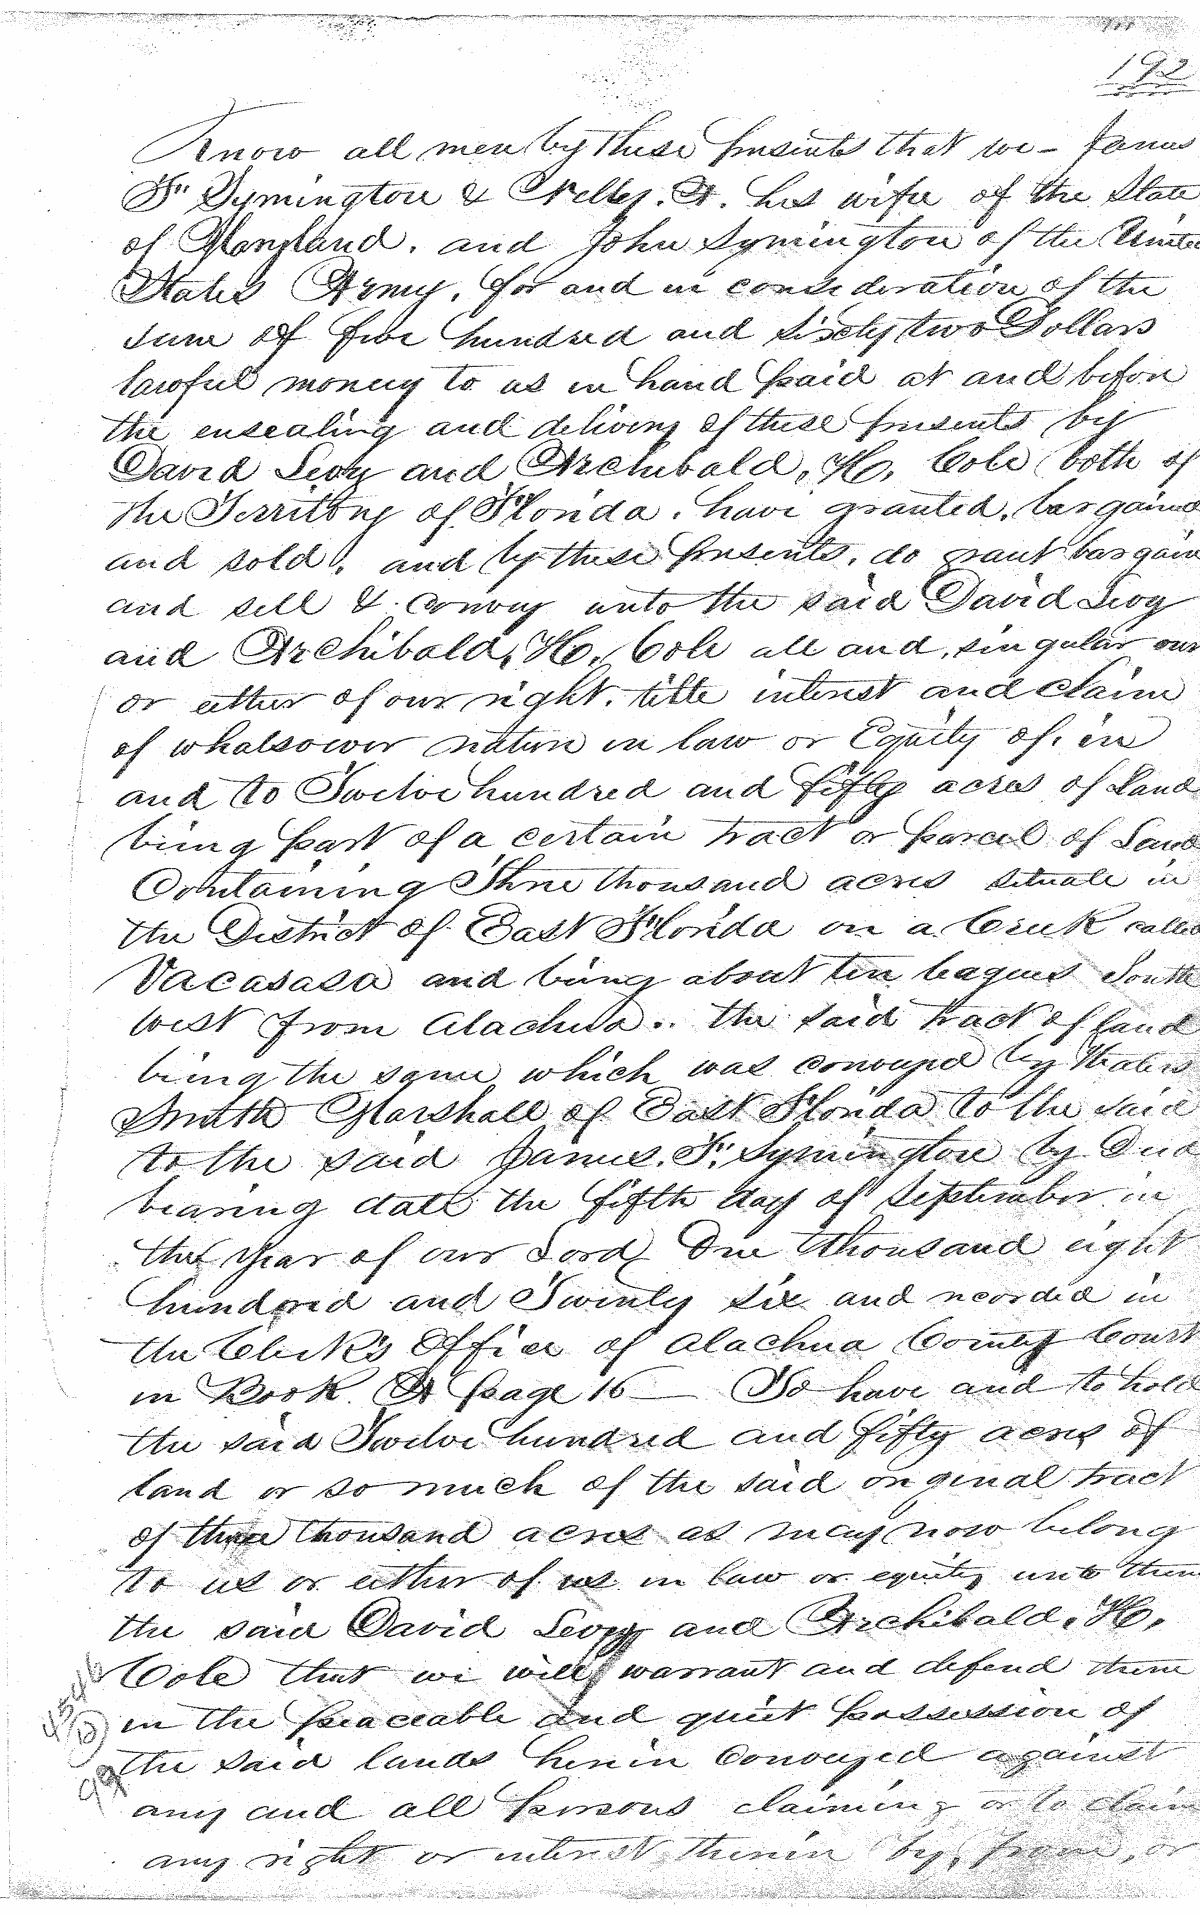 192
Know all men by these presents that we - James
F. Symington & Nelly. A. his wife of the State
of Maryland. and John Symington of the United
States Army, for and in consideration of the
sum of five hundred and sixty two Dollars
lawful money to us in hand paid at and before
the ensealing and delivery of these presents by
David Levy and Archibald, H, Cole both of
the Territory of Florida. have granted, bargained
and sold, and by these presents, do grant bargain
and sell & convey unto the said David Levy
and Archibald, H, Cole all and, singular our
or either of our right. title interest and claim
of whatsoever nature in law or Equity of, in
and to Twelve hundred and fifty acres of Land
being part of a certain tract or parcel of Land
Containing Three thousand acres situate in
the District of East Florida on a Creek called
Vacasasa and being about ten leagues South
west from Alachua.. the said tract of land
being the same which was conveyed by
Smith Marshall of East Florida to the said
to the said James. F. Symington by Deed
bearing date the fifth day of September in
the year of our Lord One thousand eight
hundred and Twenty six and recorded in
the Clerk's Office of Alachua County Court
in Book A page 16 — To have and to hold
the said Twelve hundred and fifty acres of
land or so much of the said original tract
of three thousand acres as may now belong
to us or either of us in law or equity unto them
the said David Levy and Archibald, H,
Cole that we will warrant and defend them
in the peaceable and quiet possession of
the said lands herein Conveyed against
any and all persons claiming or to claim
any right or interest therein by, from, or